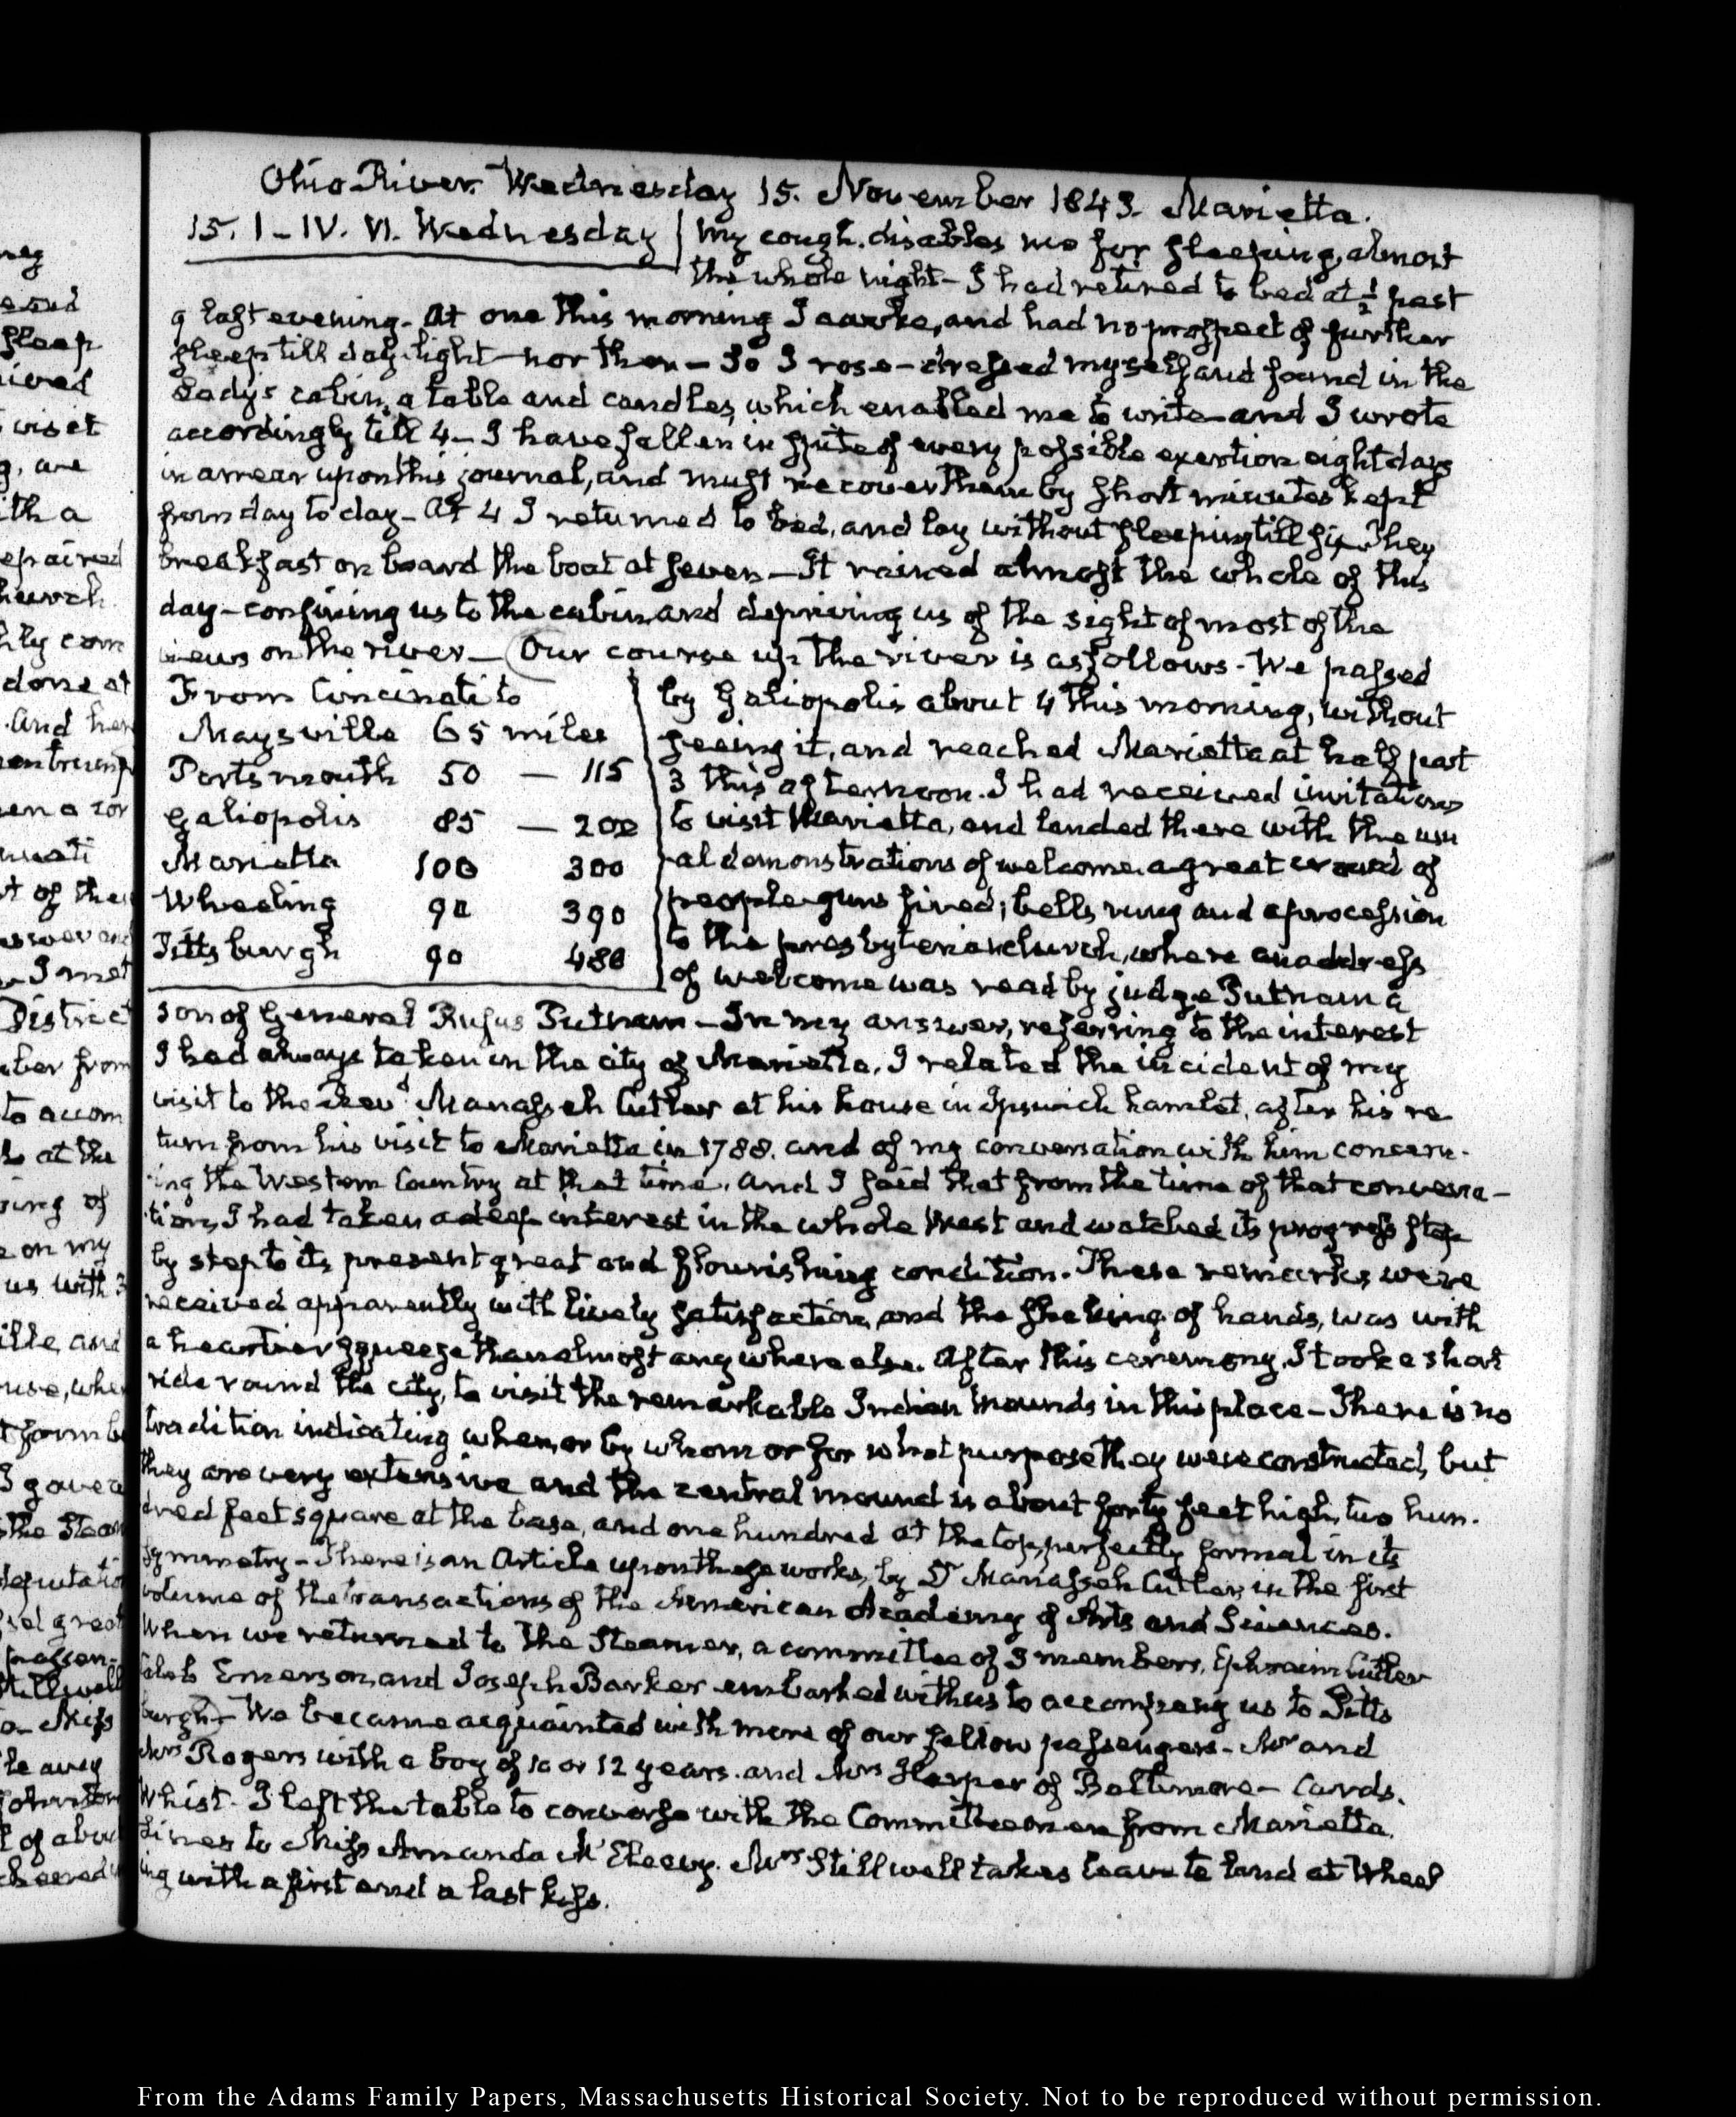 Ohio River. Wednesday 15. November 1843. Marietta.
15. I-IV. VI. Wednesday
My cough disables me for sleeping, almost
the whole night- I had retired to bed at ½ past
9 last evening- At one this morning I awoke, and had no prospect of further
sleep till day-light- nor then- So I rose- dressed myself and found in the
Lady's cabin, a table and candles, which enabled me to write- and I wrote
accordingly till 4- I have fallen in spite of every possible exertion eight days
in arrear upon this journal, and must recover them by short minutes kept
from day to day- At 4 I returned to bed, and lay without sleeping till six. They
breakfast on board the boat at seven- It rained almost the whole of this
day- confining us to the cabin and depriving us of the sight of most of the
views on the river- (Our course up the river is as follows- We passed
From Cincinati to
Maysville 65 miles
Portsmouth 50 — 115
Galiopolis 85 — 200
Marietta 100 300
Wheeling 90 390
Pittsburgh 90 480
by Galiopolis about 4 this morning, without
seeing it, and reached Marietta at half past
3 this afternoon. I had received invitations
to visit Marietta, and landed there with the usu
al demonstrations of welcome. a great crowd of
people- guns fired; bells rung and a procession
to the presbyterian church, where an address
of welcome was read by judge Putnam a
son of General Rufus Putnam- In my answer, referring to the interest
I had always taken in the city of Marietta, I related the incident of my
visit to the Revd. Manasseh Cutler at his house in Ipswich hamlet, after his re
turn from his visit to Marietta in 1788. and of my conversation with him concern-
ing the Western Country at that time. And I said that from the time of that conversa-
tion, I had taken a deep interest in the whole West and watched its progress step
by step to its present great and flourishing condition. These remarks were
received apparently with lively satisfaction, and the shaking of hands, was with
a heartier squeeze than almost any where else. After this ceremony, I took a short
ride round the city, to visit the remarkable Indian Mounds in this place- There is no
tradition indicating when, or by whom or for what purpose they were constructed, but
they are very extensive and the central mound is about forty feet high, two hun-
dred feet square at the base, and one hundred at the top, perfectly formal in its
symmetry- There is an Article upon these works, by Dr Manasseh Cutler, in the first
volume of the transactions of the American Academy of Arts and Sciences.
When we returned to the Steamer, a committee of 3 members, Ephraim Cutler
Caleb Emerson, and Joseph Barker embarked with us to accompany us to Pitts
burgh)- We became acquainted with more of our fellow passengers- Mr and
Mrs Rogers with a boy of 10 or 12 years. and Mrs Harper of Baltimore- Cards.
Whist- I left the table to converse with the Committee men from Marietta.
Lines to Miss Amanda McElhevy. Mrs Stillwell takes leave to land at Wheel
ing with a first and a last kiss.
From the Adams Family Papers, Massachusetts Historical Society. Not to be reproduced without permission.